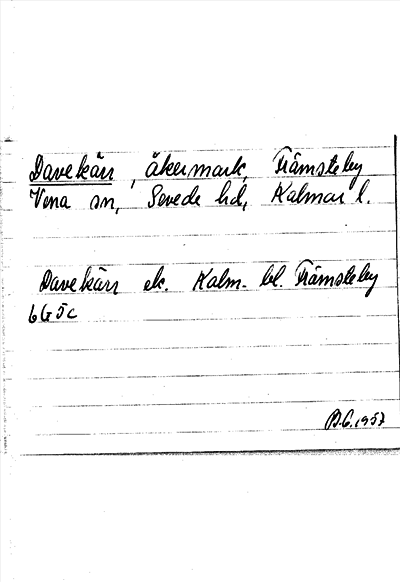 Davekärr, åkermark, Främsteby
Vena sn, Sevede hd, Kalmar l.
Davekärr ek. Kalm. bl. Främsteby
6G5c
1957